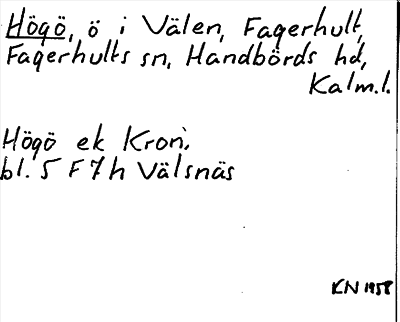 Högö, ö i Välen, Fagerhult,
Fagerhults sn, Handbörds hd,
Kalm.l.
Högö ek Kron.
bl. 5 F 7 h Välsnäs
KN 1958